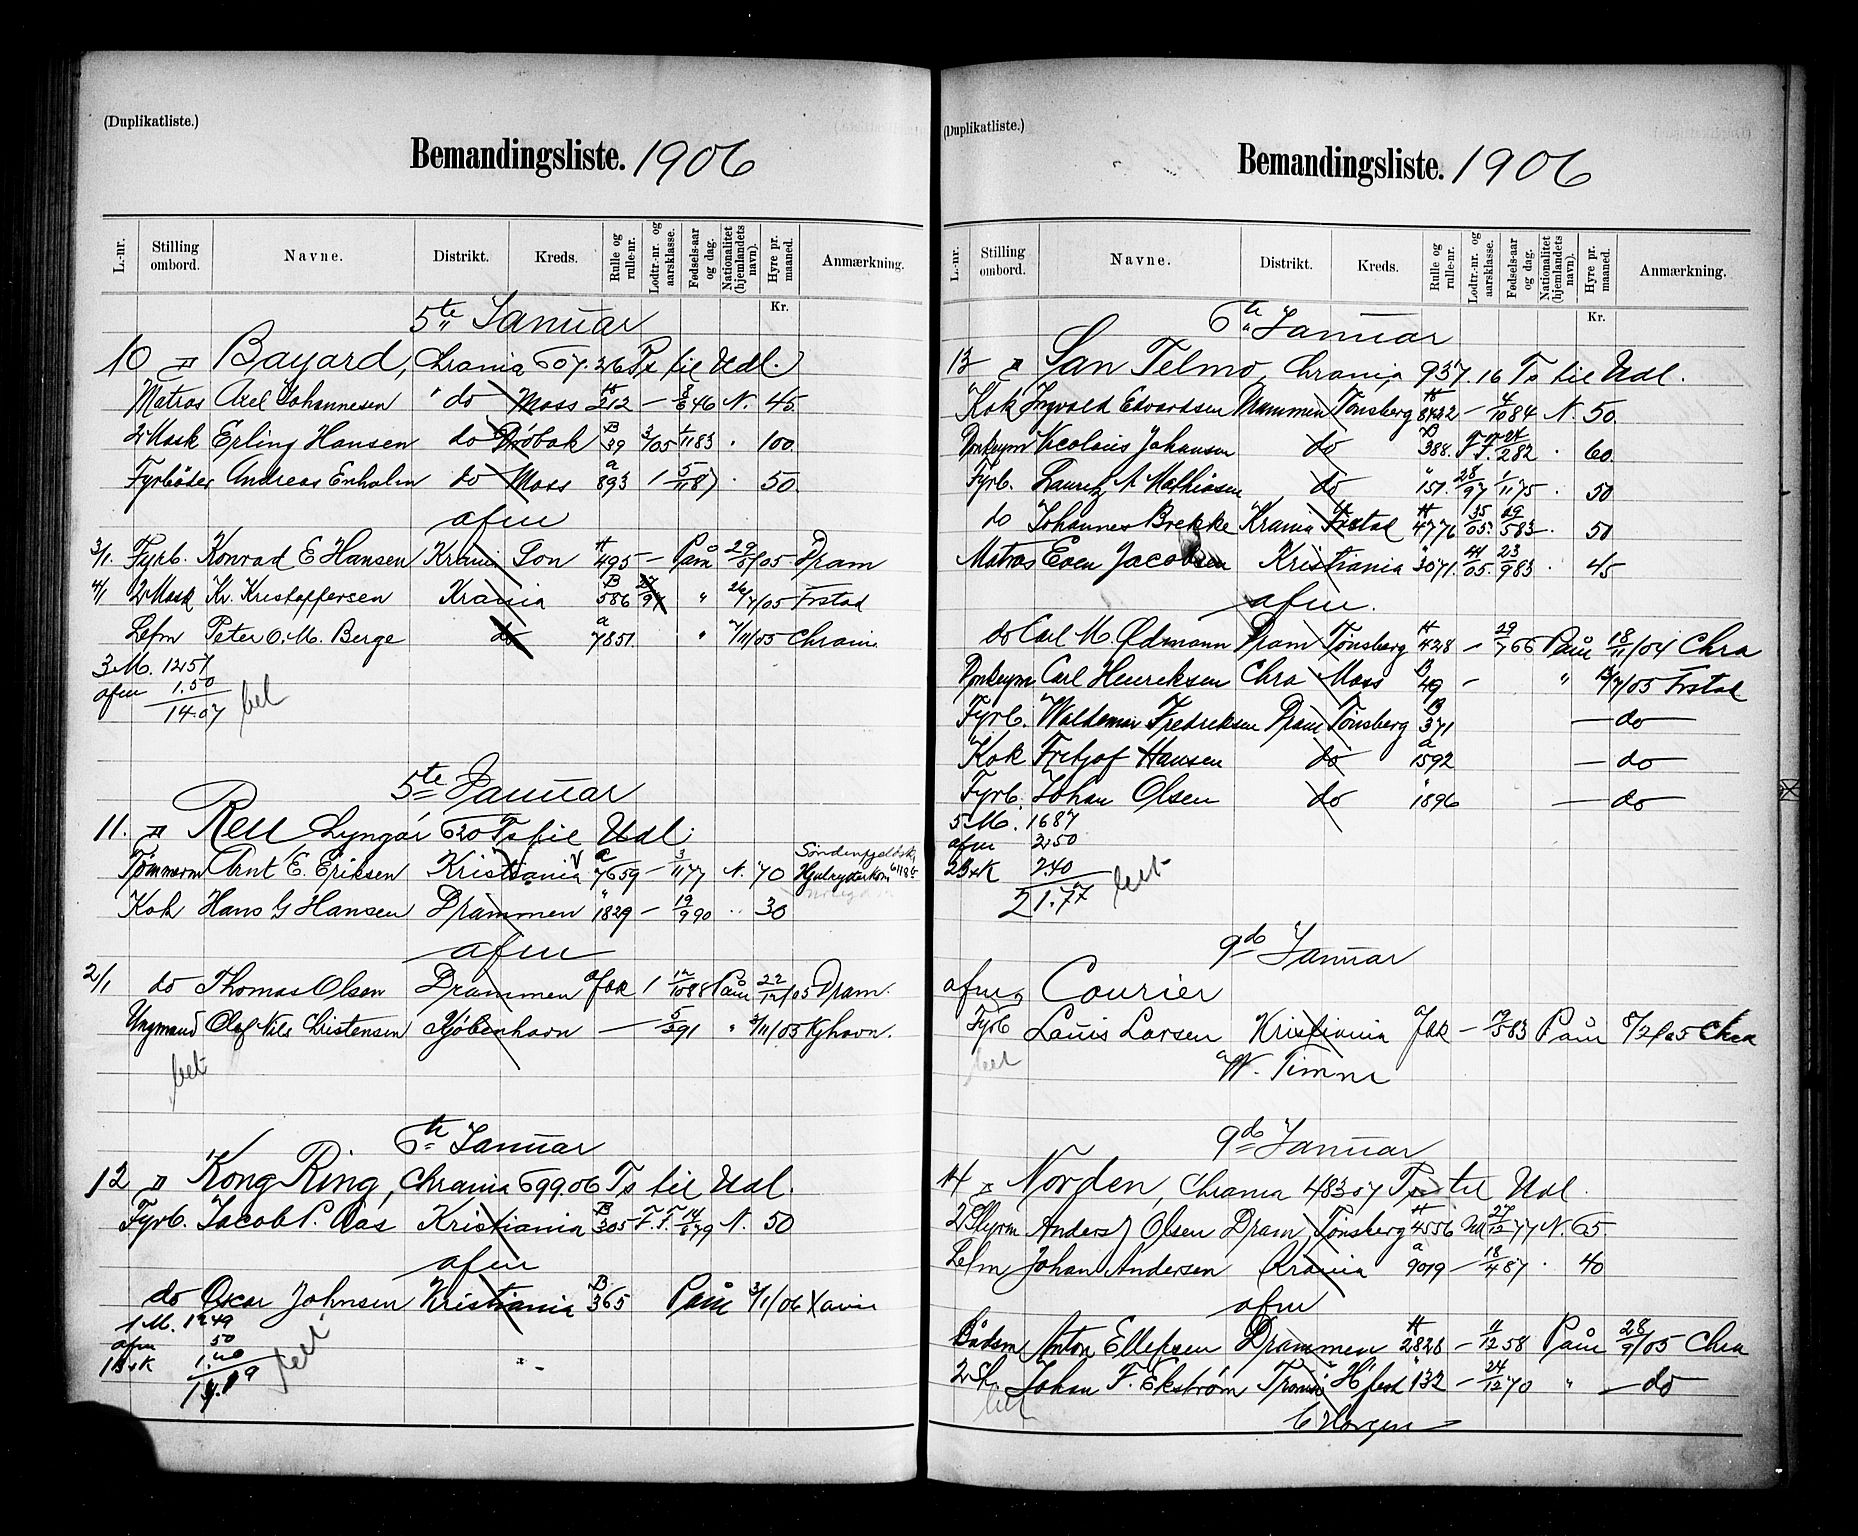 (Duplikatliste.)
Bemandingsliste. 1906
L.-nr. Stilling ombord. Navne. Distrikt. Kreds. Rulle og rulle-nr. Lodtr.-nr. og aarsklasse. Fødsels-aar og dag. Nationalitet (hjemlandets navn). Hyre pr. maaned. Anmærkning.
Kr.
5te Januar
10 Bayard, Chrania 607.26 Ts til Udl.
Matros Axel Johannesen do Moss H 212 — 8/6 46 N. 45
2 Mask Erling Hansen do Drøbak B 39 3/05 1/11 83 100
Fyrbøder Andreas Enholm do Moss a 893 1 5/11 87 50
afm
3/1 Fyrb. Konrad E Hansen Krania Son H 495 — Paam 29/8/05 Dram
4/1 2 Mask Kr. Kristoffersen Krania B 586 27/97 " 26/7/05 Frstad
Lefm Peter O. M. Berge do a 7851 " 7/11/05 Chrania
3 M. 12.57
afm 1.50
14.07 bet
5te Januar
11. Reu Lyngør 620 Ts til Udl.
Tømmerm Arnt E. Eriksen Kristiania a 7659 — 3/11 77 N. 70 Søndenfjeldsk Hjulryterkom 6118
Kok Hans G Hansen Drammen " 1829 — 19/9 90 30
afm
2/1 do Thomas Olsen Drammen afsk 1 12/10 88 Paam 22/12/05 Dram.
Ungmand Olaf Nils Christensen Kjøbenhavn — 5/3 91 " 3/11/05 Kjhavn.
bet
6te Januar
12 Kong Ring, Chrania 699.06 Ts til Udl.
Fyrb. Jacob P. Aas Kristiania B 305 F.F. 14/8 79 N. 50
afm
do Oscar Johnsen Kristiania B 365 Paam 3/1/06 Xania
1 M. 12.49
afm 50
1 B & K 1.20
14.19 bet
(Duplikatliste.)
Bemandingsliste. 1906
L.-nr. Stilling ombord. Navne. Distrikt. Kreds. Rulle og rulle-nr. Lodtr.-nr. og aarsklasse. Fødsels-aar og dag. Nationalitet (hjemlandets navn). Hyre pr. maaned. Anmærkning.
Kr.
6te Januar
13 San Telmo, Chrania 937.16 Ts til Udl.
Kok Ingvald Edvardsen Drammen Tønsberg H 8432 — 4/10 84 N. 50
Donkeym Nicolais Johansen do B 388. F.F. 24/2 82 60
Fyrb. Lauritz A Mathiasen do " 151. 28/97 1/11 75 50
do Johannes Brekke Krania Frstad H 4776 35/05 29/5 83 50
Matros Even Jacobsen Kristiania " 3071. 41/05 23/9 83 45
afm.
do Carl M. Ødmann Dram Tønsberg H 428 — 29/7 66 Paam 18/11/04 Chra
Donkeym Carl Henriksen Chra Moss B 49 — " 12/7/05 Frstad
Fyrb. Waldemar Fredriksen Dram Tønsberg B 371 — do —
Kok Fritjof Hansen do a 1592 — do —
Fyrb. Johan Olsen do " 1896 — do —
5 M. 1687
afm 2.50
2 B & K 2.40
21.77 bet
9de Januar
afm Courier
Fyrb Lauis Larsen Kristiania afsk — 17/5 83 Paam 5/2/05 Chra
bet W. Timme
9de Januar
14 Norden, Chrania 483.07 Ts til Udl.
2 Styrm Anders J Olsen Dram Tønsberg H 4556 27/12 77 N. 65
Lefm Johan Andersen Krania a 9019 — 18/4 87 40
afm
Baadsm Anton Ellefsen Drammen H 2828 — 11/12 58 Paam 28/9/05 Chra
2 St. Johan F. Ekstrøm Tromsø H'fest " 132 — 24/12 70 " — do
bet C Horgen